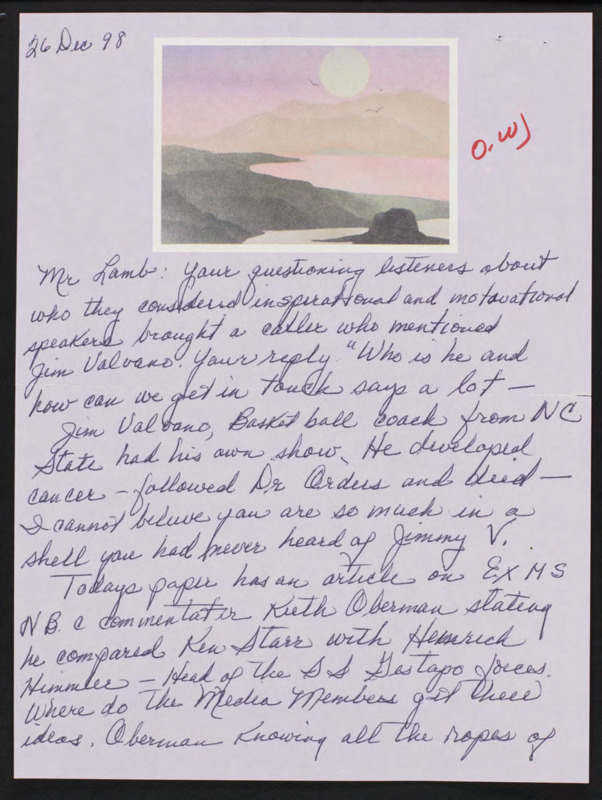 26 Dec 98
O.W)
Mr Lamb: Your questioning listeners about
who they considered inspirational and motovational
speakers brought a caller who mentioned
Jim Valvano. Your reply "Who is he and
how can we get in touch says a lot —
Jim Valvano, Basket ball coach from NC
State had his own show. He developed
cancer – followed Dr Orders and died —
I cannot believe you are so much in a
shell you had never heard of Jimmy V.
Todays paper has an article on EX MS
N B. C commentater Kieth Oberman stating
he compared Ken Starr with Heinrich
Himmler – Head of the S S Gestapo forces.
Where do the Media Members get these
ideas. Oberman knowing all the ropes of